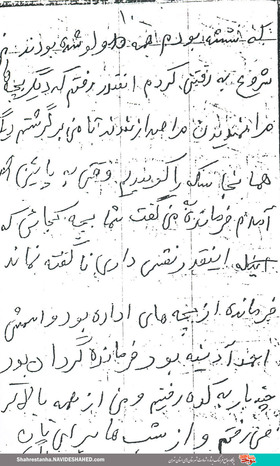 ۱۰
که نشسته بودم همه ولو شده بودند من
شروع به رفتن کردم انقدر رفتم که دیگر بچه‌ها
مرا ندیدند مرا صدا زدند تا من برگشتم دیگر
همانجا سنگر را کوبیدیم وقتی به پائین
آمدم فرمانده می گفت شما بچه کجائی که
اینقدر نفس داری ناگفته نماند
فرمانده از بچه های اداره بود و اسمش
احمد آدینه بود فرمانده گردان بود
چند بار به کوه رفتیم و من از همه بالاتر
می رفتم و از شب ها برای
Shahrestanha.NAVIDESHAHED.com